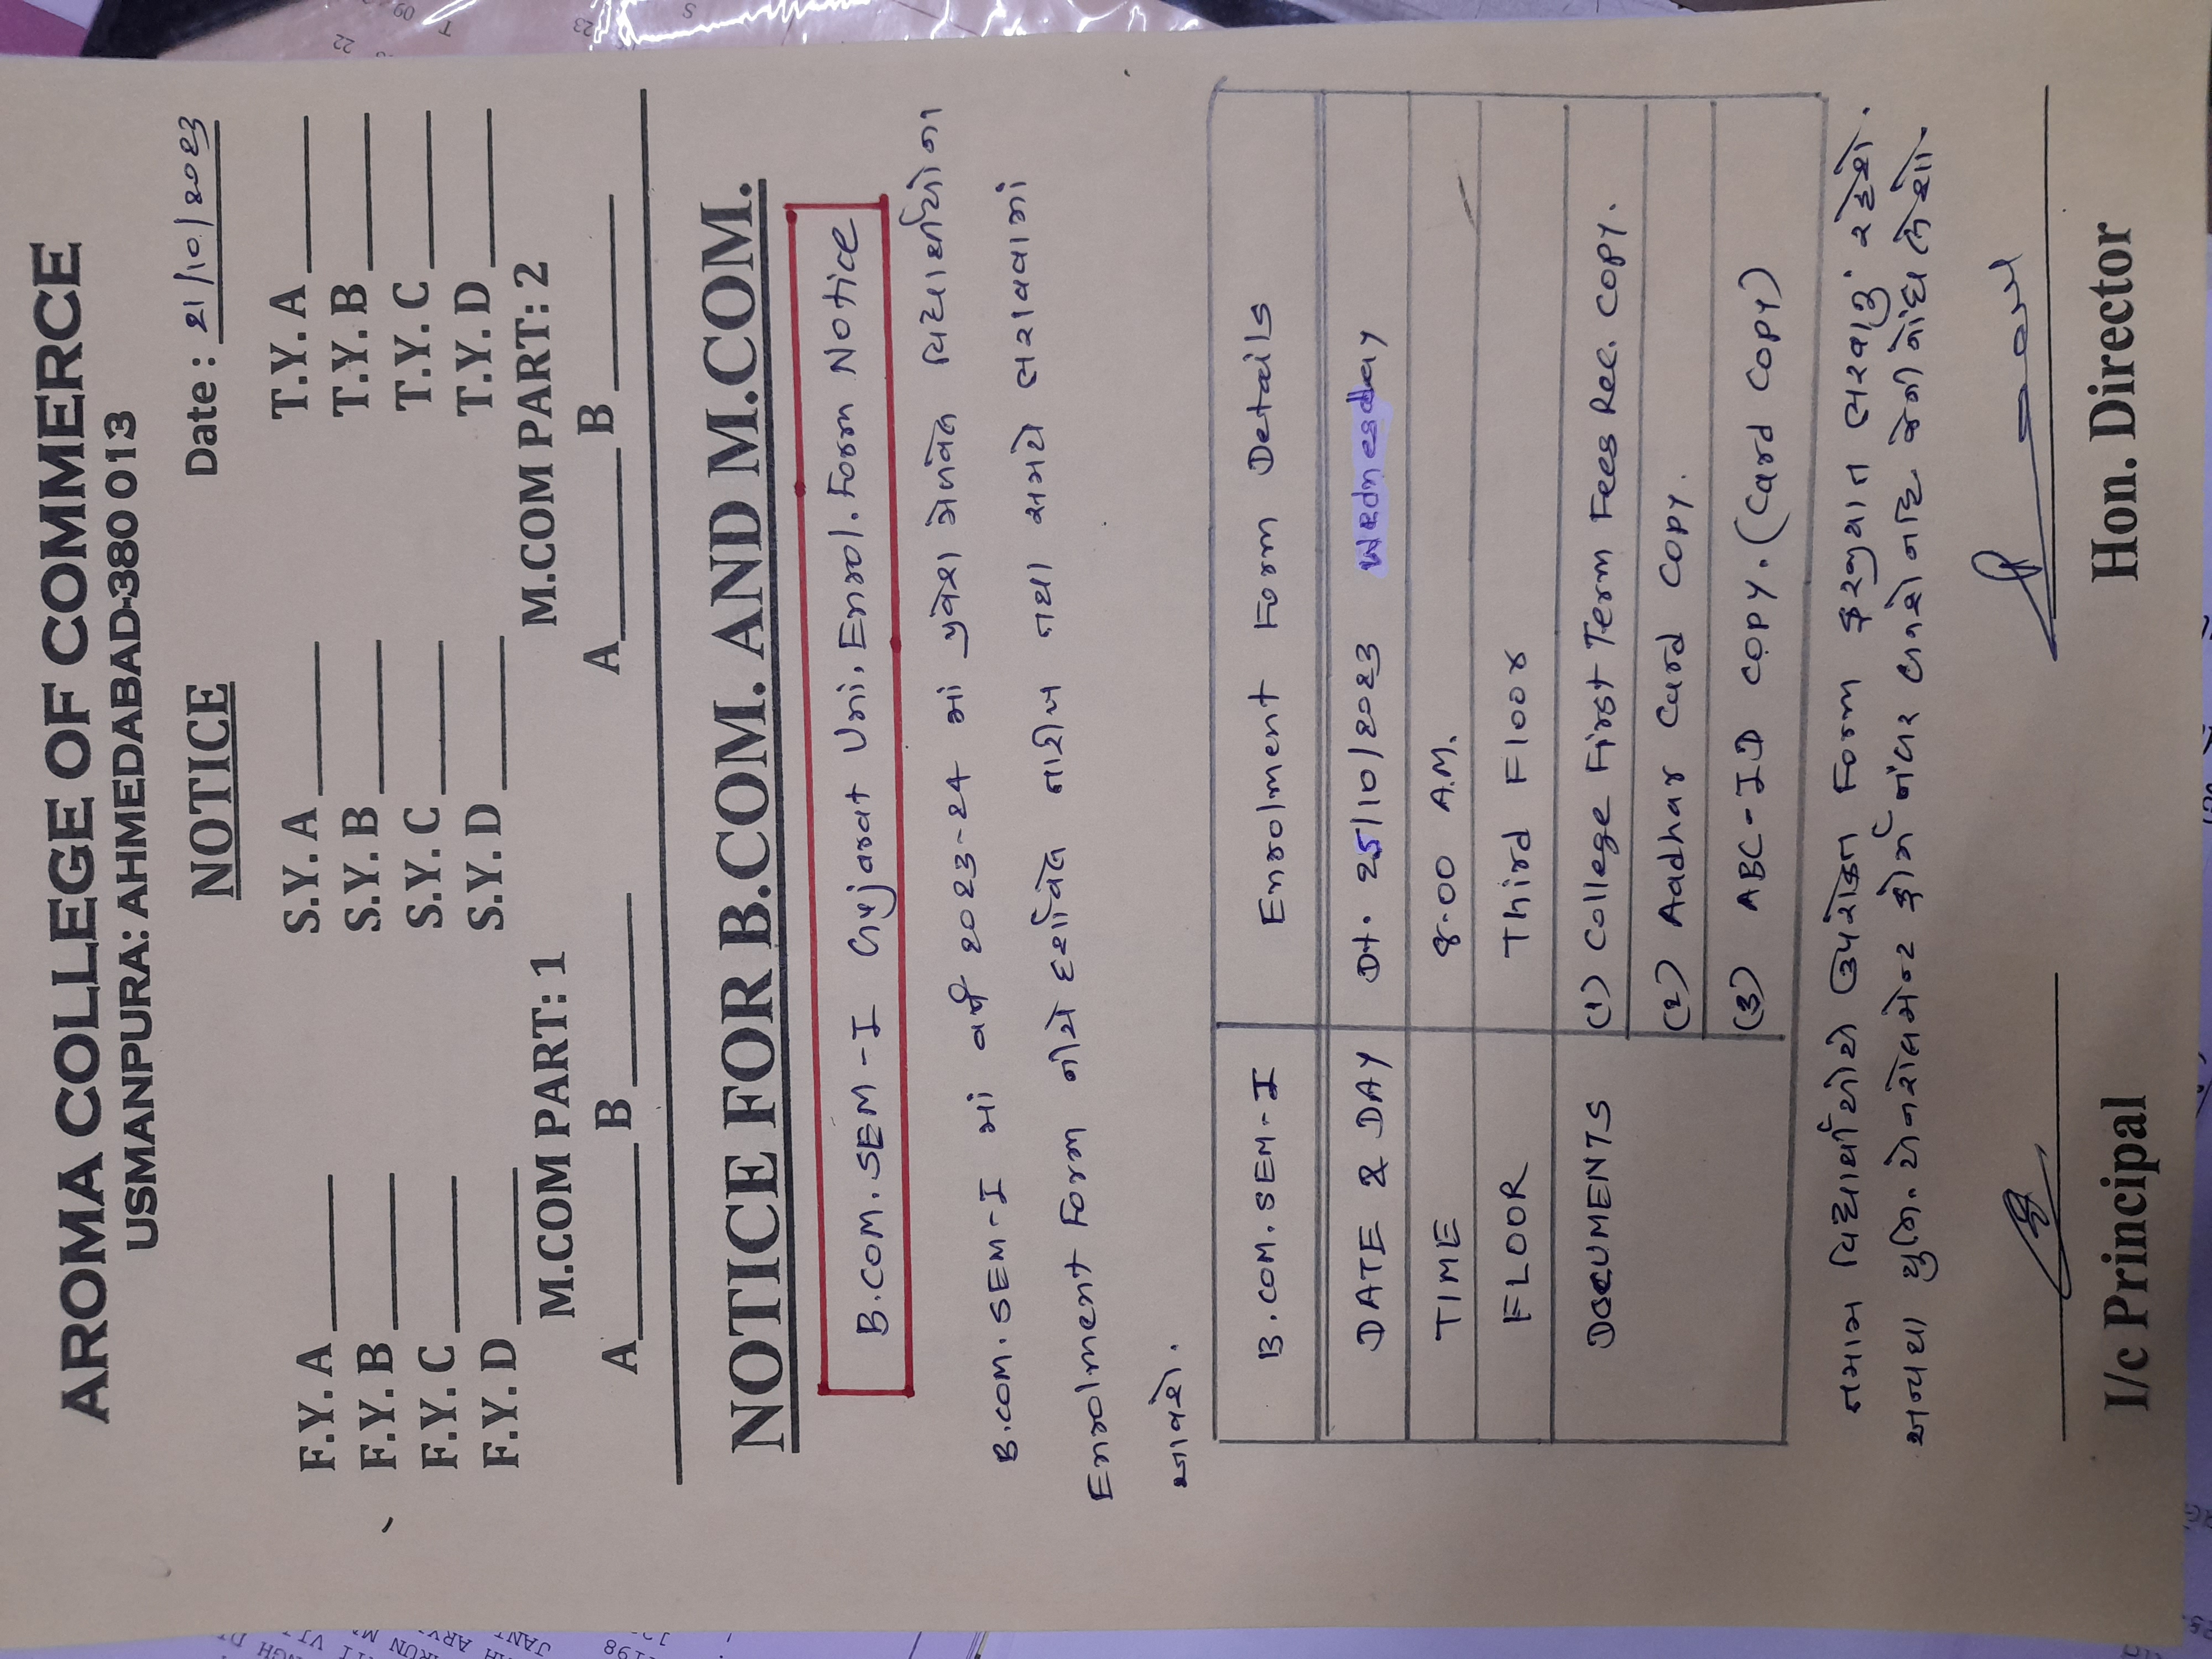 AROMA COLLEGE OF COMMERCE
USMANPURA: AHMEDABAD-380 013
NOTICE
Date : 21/10/2023
F.Y. A ______ S.Y. A ______ T.Y. A ______
F.Y. B ______ S.Y. B ______ T.Y. B ______
F.Y. C ______ S.Y. C ______ T.Y. C ______
F.Y. D ______ S.Y. D ______ T.Y. D ______
M.COM PART: 1 M.COM PART: 2
A ______ B ______ A ______ B ______
NOTICE FOR B.COM. AND M.COM.
B.COM. SEM-I Gujarat Uni. Enrol. Form Notice
B.COM. SEM-I માં વર્ષ 2023-24 માં પ્રવેશ મેળવેલ વિદ્યાર્થીઓના
Enrolment Form નીચે દર્શાવેલ તારીખ તથા સમયે ભરાવવામાં
આવશે.
B.COM. SEM-I Enrolment Form Details
DATE & DAY Dt. 25/10/2023 Wednesday
TIME 8.00 A.M.
FLOOR Third Floor
DOCUMENTS (1) College First Term Fees Rec. Copy.
(2) Aadhar Card Copy.
(3) ABC-ID Copy. (Card Copy)
તમામ વિદ્યાર્થીઓએ ઉપરોક્ત Form ફરજીયાત ભરવાનું રહેશે.
અન્યથા યુનિ. એનરોલમેન્ટ ફોર્મ નંબર લાગશે નહિ જેની નોંધ લેશો.
I/c Principal Hon. Director